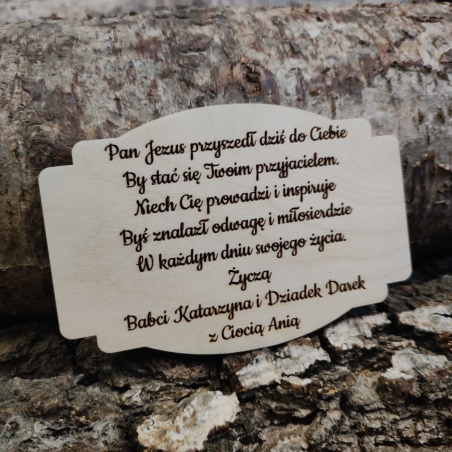 Pan Jezus przyszedł dziś do Ciebie
By stać się Twoim przyjacielem.
Niech Cię prowadzi i inspiruje
Byś znalazł odwagę i miłosierdzie
W każdym dniu swojego życia.
Życzą
Babci Katarzyna i Dziadek Darek
z Ciocią Anią